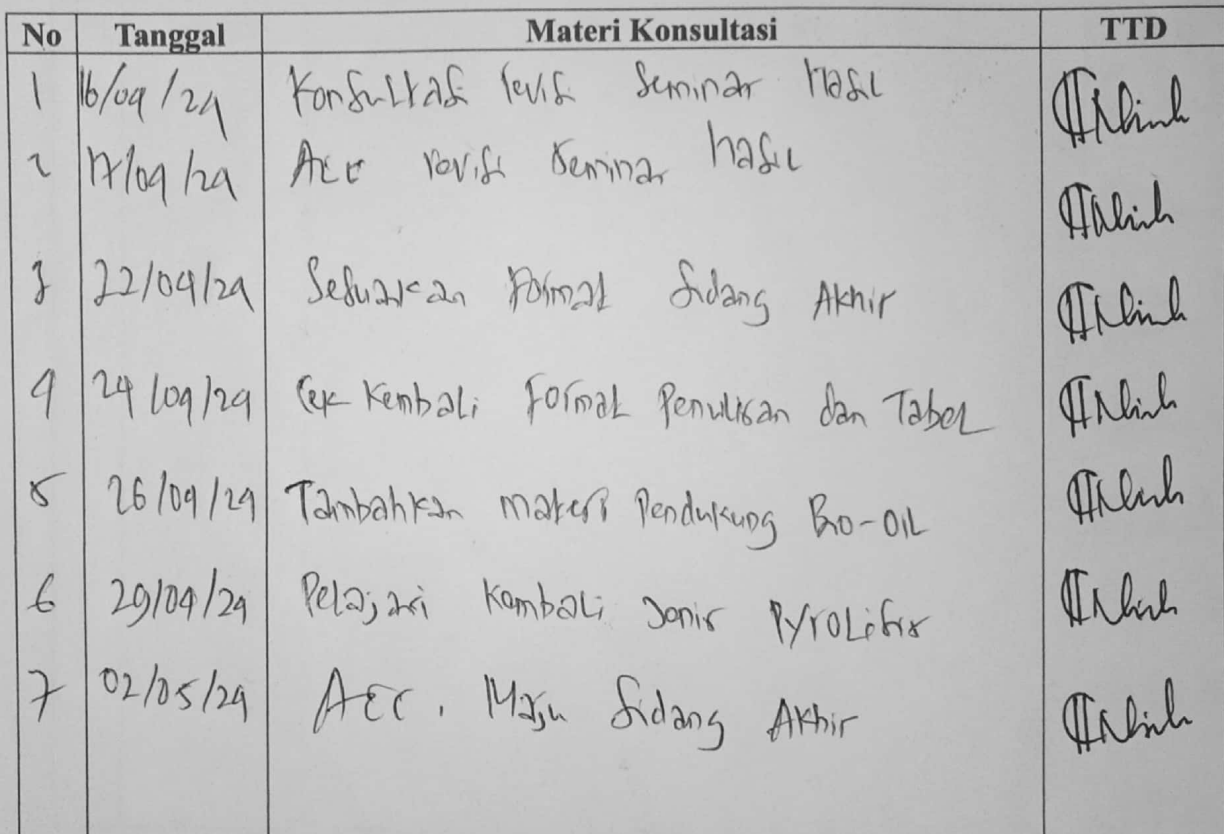 No Tanggal Materi Konsultasi TTD
1 16/04/24 Konsultasi revisi Seminar Hasil
2 17/04/24 Acc revisi Seminar hasil
3 22/04/24 Sesuaikan Format Sidang Akhir
4 24/04/24 Cek Kembali Format Penulisan dan Tabel
5 26/04/24 Tambahkan materi Pendukung Bio-OIL
6 29/04/24 Pelajari Kembali Jenis Pyrolisis
7 02/05/24 Acc. Maju Sidang Akhir